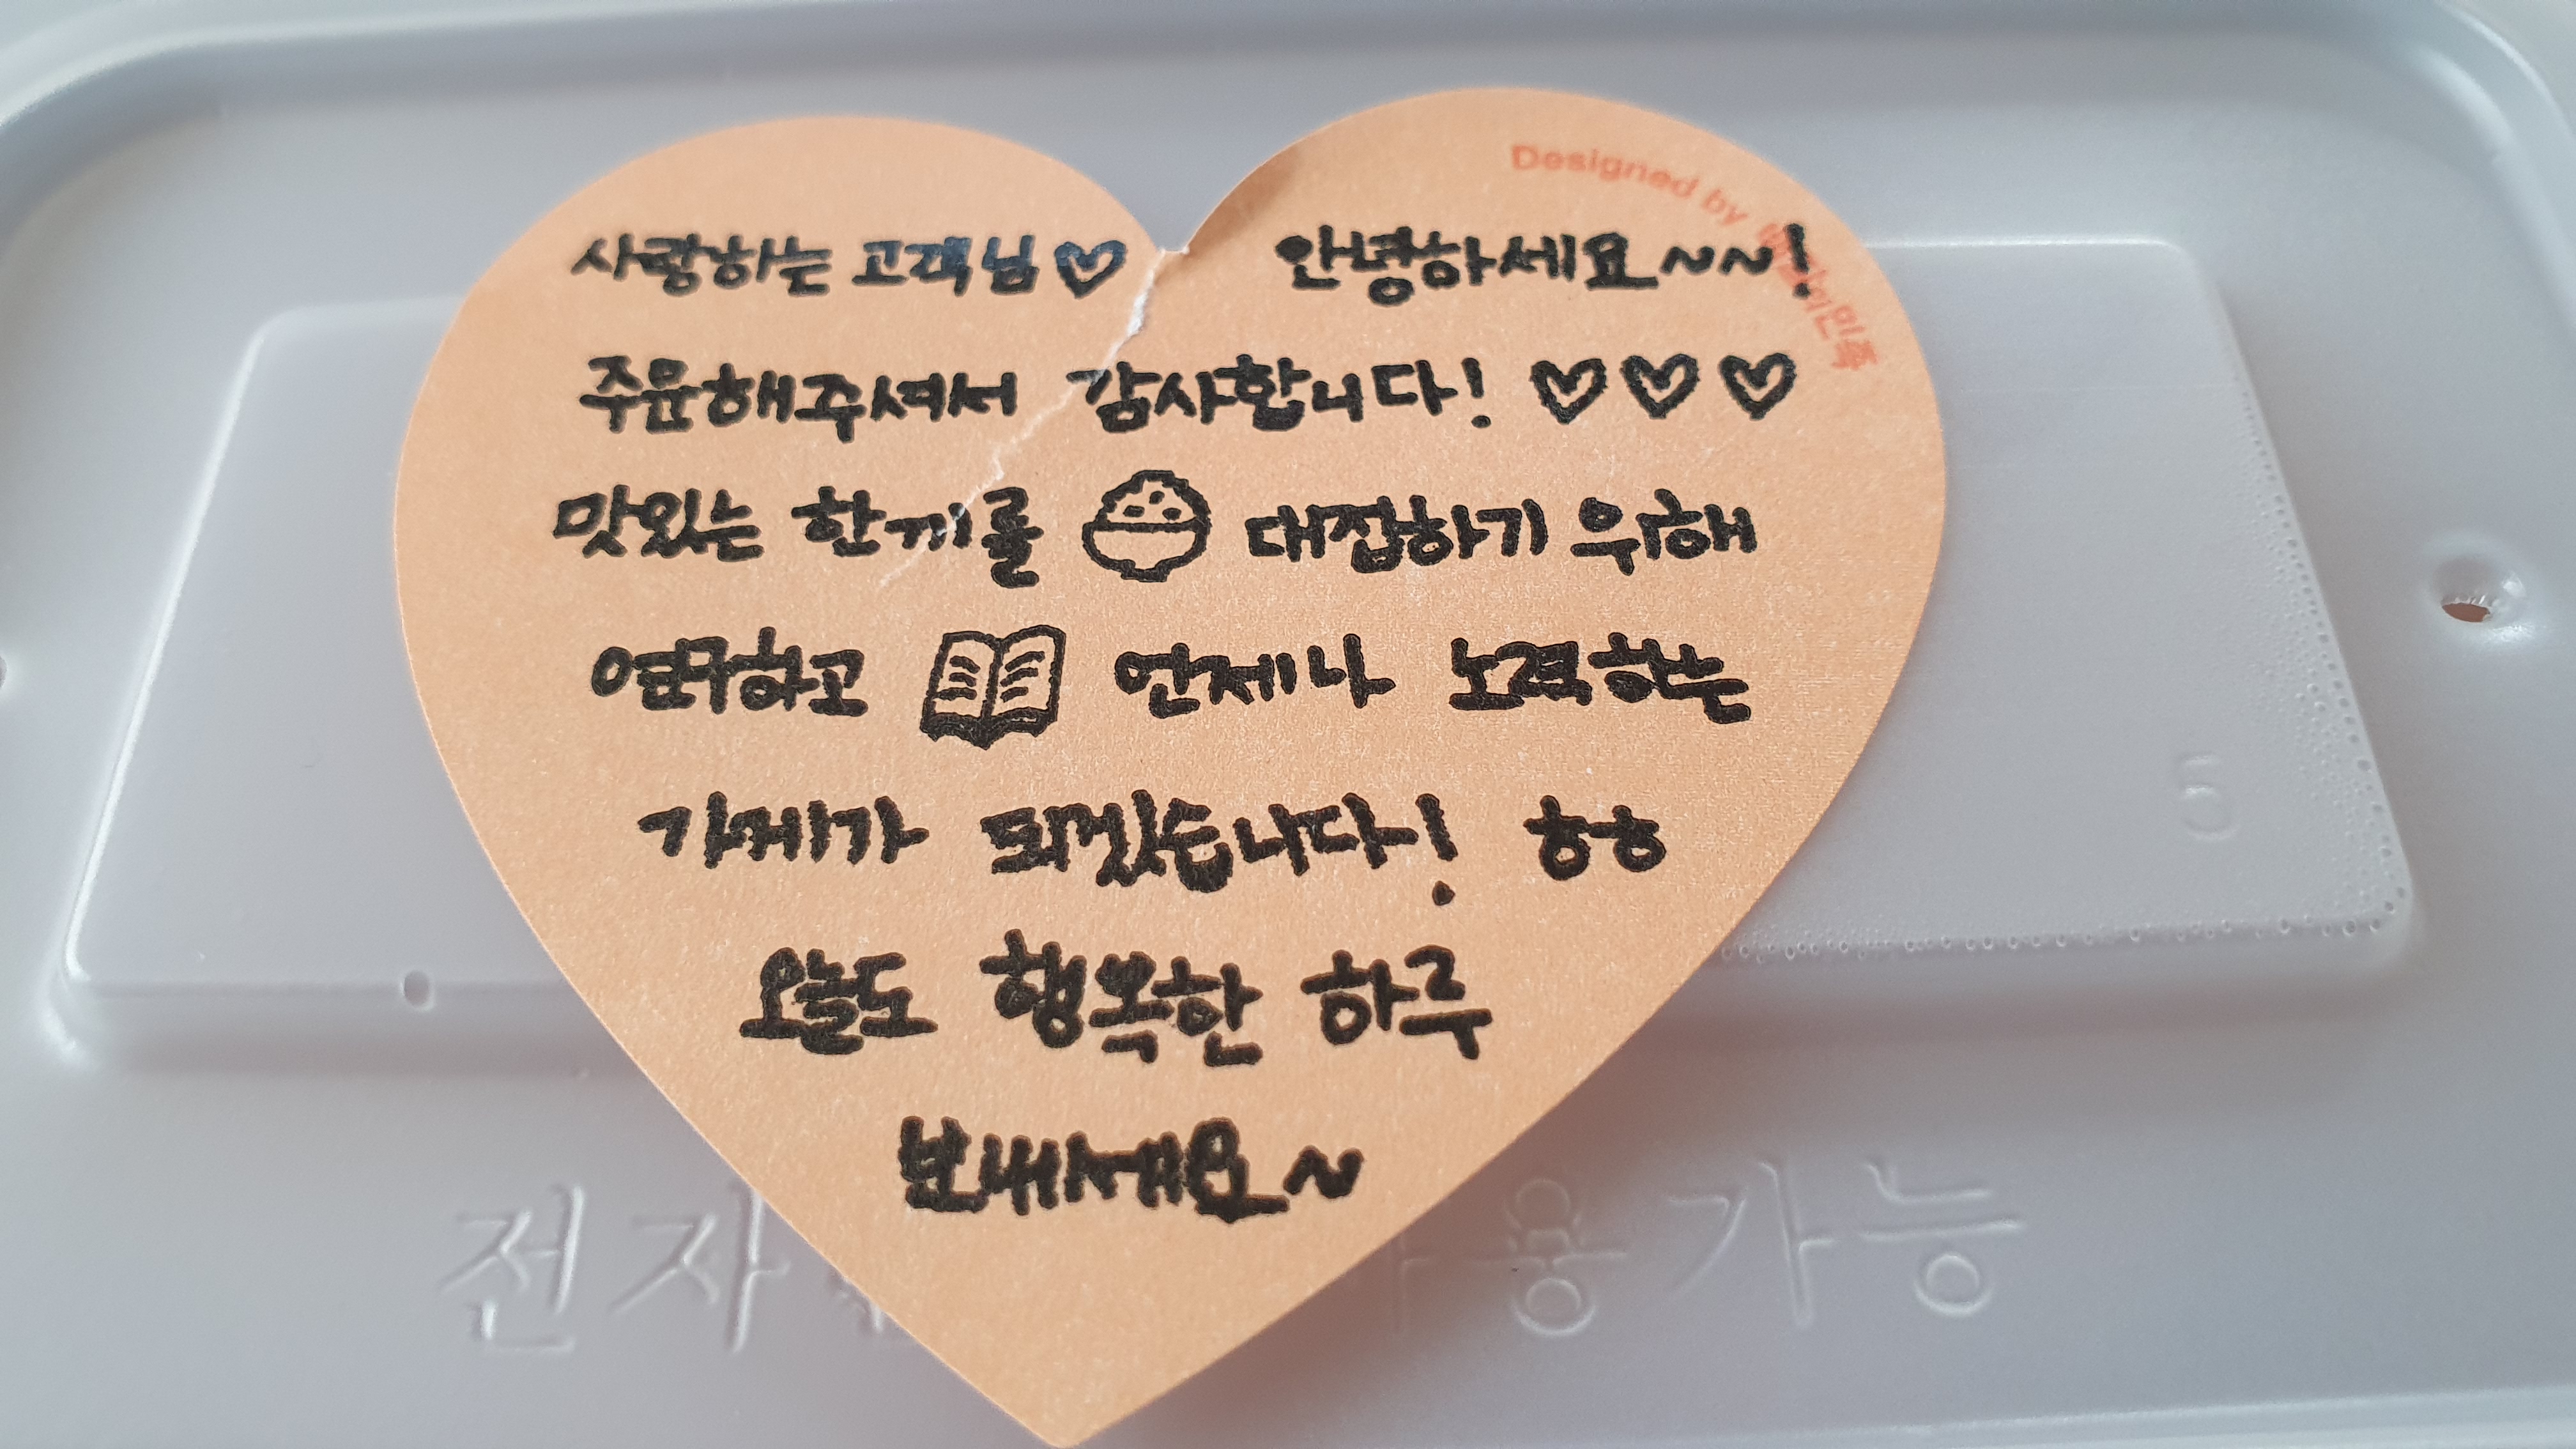 Designed by 배달의민족
사랑하는 고객님♡ 안녕하세요~~!
주문해주셔서 감사합니다! ♡♡♡
맛있는 한끼를 대접하기 위해
연구하고 언제나 노력하는
가게가 되겠습니다! ㅎㅎ
오늘도 행복한 하루
보내세요~
5
전자 용가능